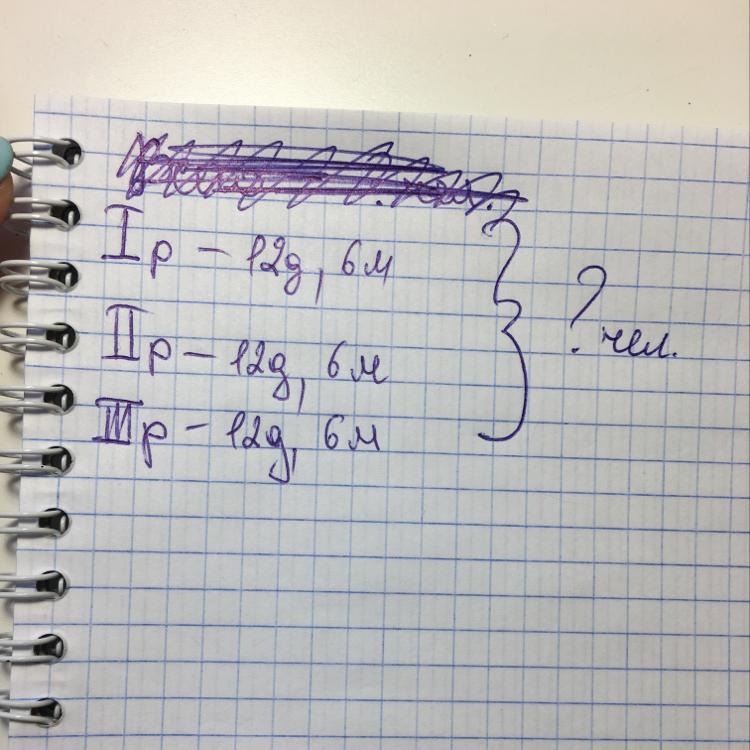 I р – 12д, 6м
II р – 12д, 6м
III р – 12д, 6м
? чел.